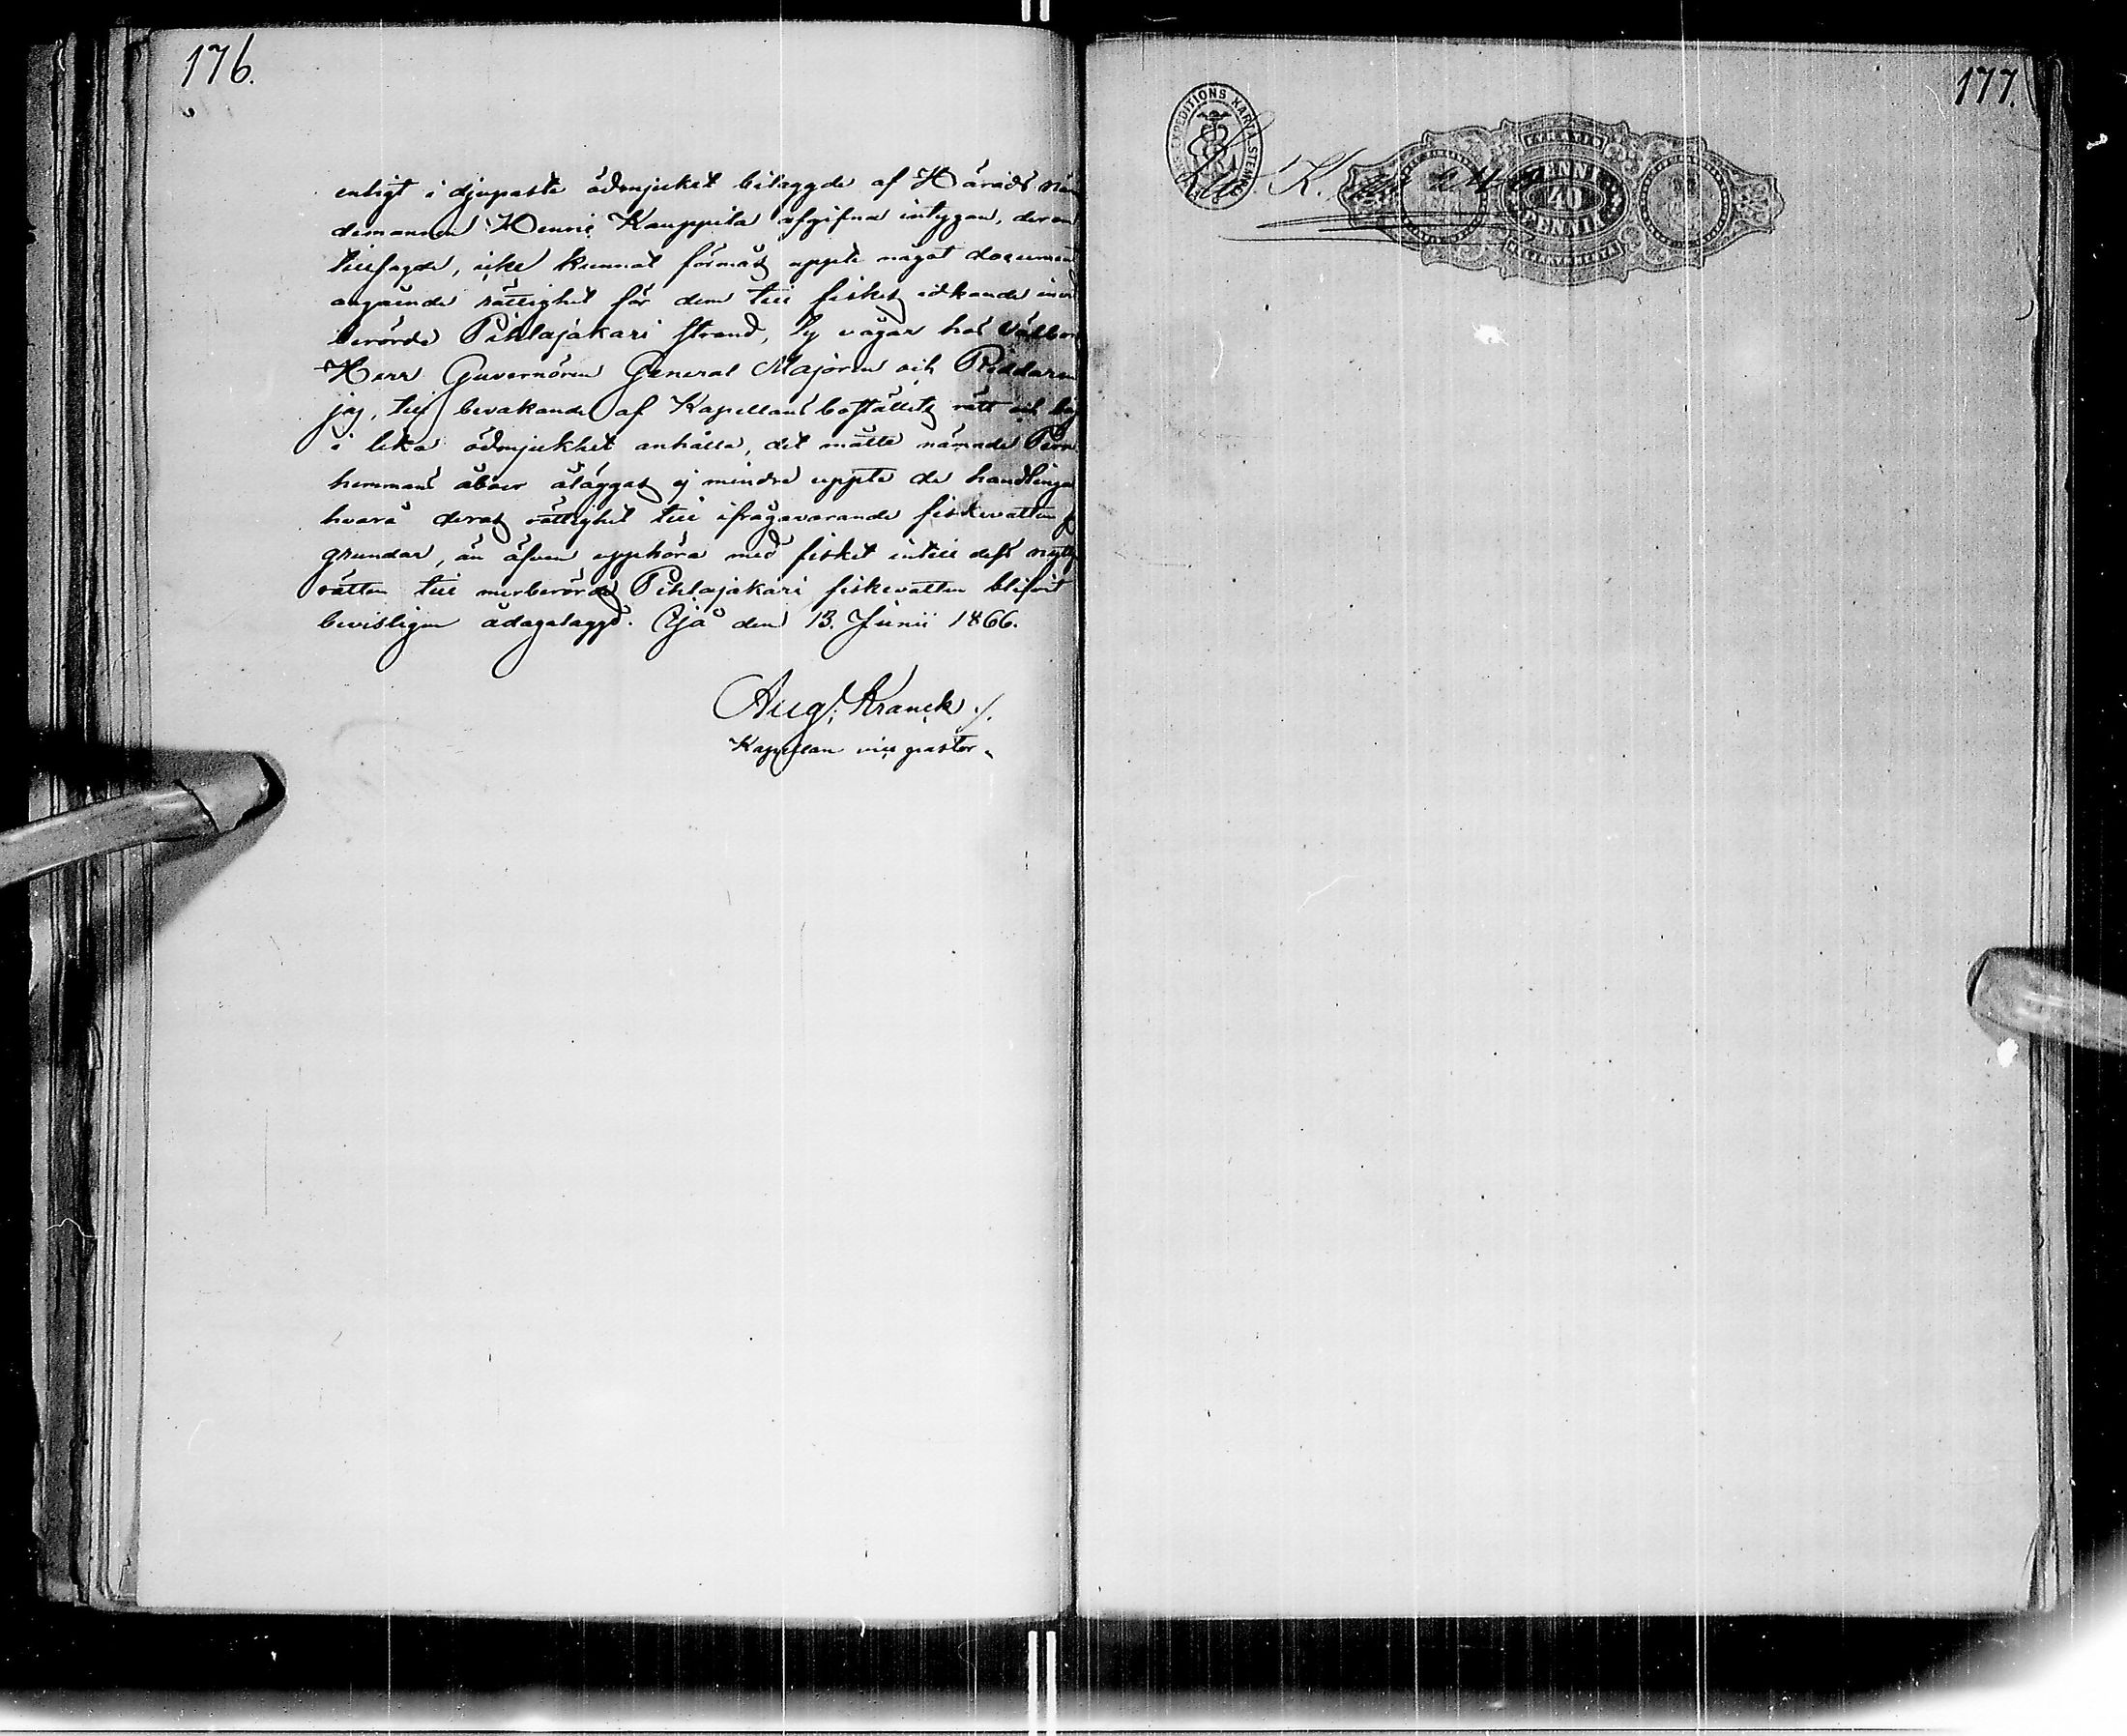 176.
enligt i djupaste ödmjukhet bilaggde af Härads nän
demannen Henric Kauppila afgifna intygan, derom
tillsagde, icke kunnat förmås uppte något document
angående rättighet för dem till fiskets idkande invid
berörde Pihlajakari strand, ty vågar hos Välborne
Herr Guvernören General Majoren och Riddaren
jag, till bevakande af Kapellans boställets rätt och
i lika ödmjukhet anhålla, det måtte nämnde
hemmans åboer åläggas ej mindre uppte de handlingar
hvarå deras rättighet till ifrågavarande fiskevatten
grundar, än äfven upphöra med fisket intill dess
rätten till merberörde Pihlajakari fiskevatten blifvit
bevisligen ådagalaggd. Ijå den 13. Junii 1866.
Aug. Kranck
Kapellan vice pastor.
177.
EXPEDITIONS KARTA STEMPEL
K.
PENNI
40
PENNIÄ